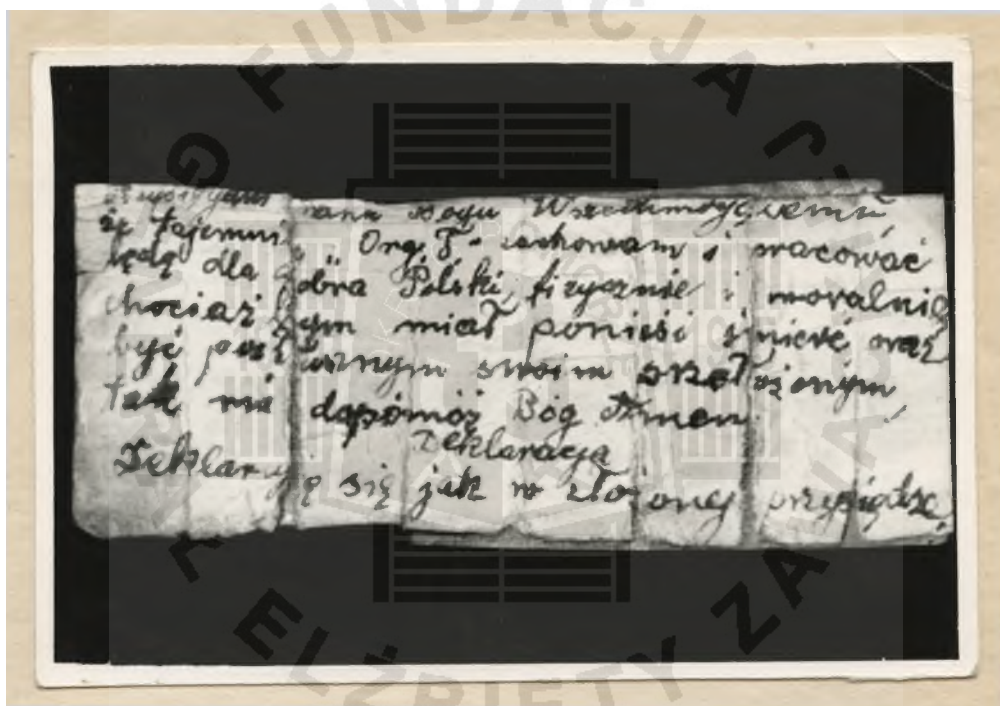 FUNDACJA
Przysięgam Panu Bogu Wszechmogącemu
że tajemnicę Org. T. zachowam i pracować
będę dla dobra Polski, fizycznie i moralnie
chociaż bym miał ponieść śmierć, oraz
być posłusznym swoim przełożonym,
tak mi dopomóż Bóg Amen.
Deklaracja
Deklaruję się jak w złożonej przysiędze,
ELŻBIETY ZA